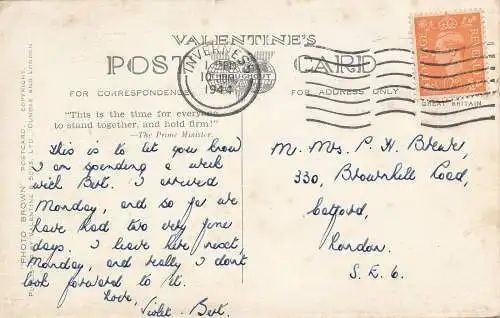 VALENTINE'S
POST CARD
FOR CORRESPONDENCE
FOR ADDRESS ONLY
"This is the time for everyone
to stand together, and hold firm!"
—The Prime Minister.
This is to let you know
I am spending a week
with Bert. I arrived
Monday, and so far we
have had two very fine
days. I leave here next
Monday, and really I don't
look forward to it.
Love,
Violet Bert.
INVERNESS
1944
POSTAGE
REVENUE
GREAT BRITAIN
M. Mrs. P. H. Brewer,
330, Brownhill Road,
Catford,
London.
S.E.6.
"PHOTO BROWN" POSTCARD. COPYRIGHT.
VALENTINE & SONS, LTD., DUNDEE AND LONDON